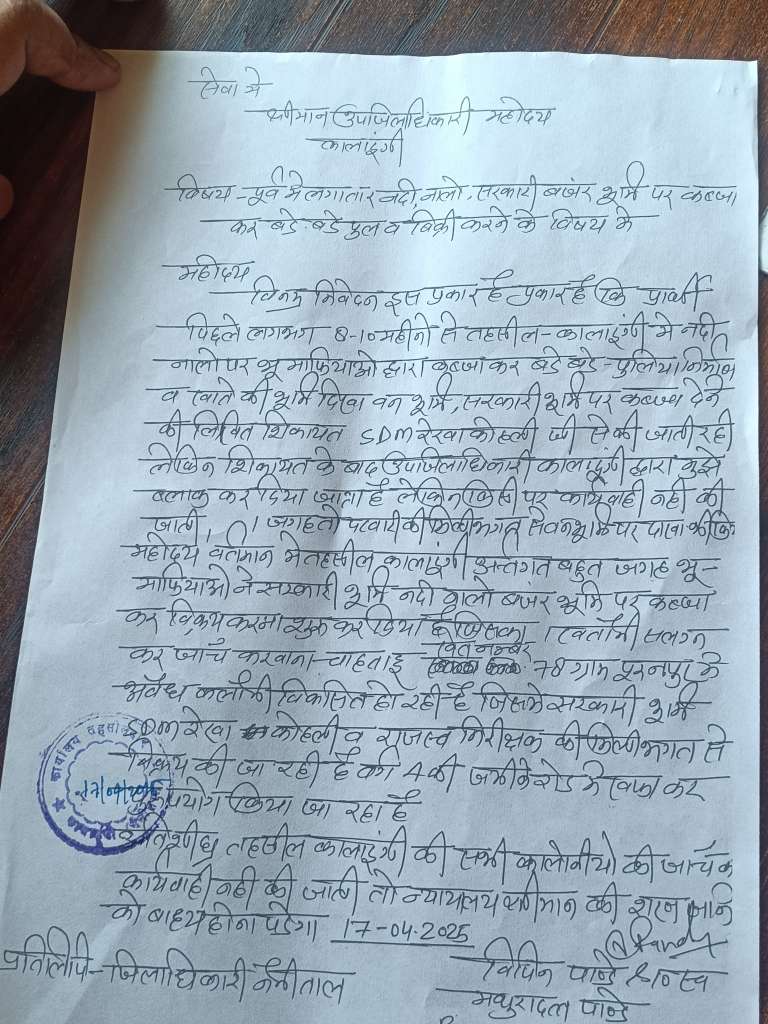 सेवा मे
श्रीमान उपजिलाधिकारी महोदय
कालाढूंगी
विषय - पूर्व मे लगातार नदी, नालो, सरकारी बजंर भूमि पर कब्जा
कर बडे-बडे पुल व बिक्री करने के विषय मे
महोदय
विनम्र निवेदन इस प्रकार है प्रकार है कि प्रार्थी
पिछले लगभग 8-10 महीनो से तहसील - कालाढूंगी मे नदी
नालो पर भू माफियाओ द्वारा कब्जा कर बडे बडे - पुलिया निर्माण
व खाते की भूमि दिखा वन भूमि, सरकारी भूमि पर कब्जा देने
की लिखित शिकायत SDM रेखा कोहली जी से की जाती रही
लेकिन शिकायत के बाद उपजिलाधिकारी कालाढूंगी द्वारा मुझे
ब्लाक कर दिया जाता है लेकिन किसी पर कार्यवाही नही की
जाती, जगह तो पटवारी की मिलीभगत से वन भूमि पर
महोदय वर्तमान मे तहसील कालाढूंगी अर्न्तगत बहुत जगह भू-
माफियाओ ने सरकारी भूमि नदी नालो बजंर भूमि पर कब्जा
कर विक्रय करना शुरू कर दिया है जिसका खतौनी सलग्न
कर जाँच करवाना चाहता हूँ खेत नम्बर 78 ग्राम पूरनपुर मे
अवैध कलौनी विकसित हो रही है जिसमे सरकारी भूमि
SDM रेखा कोहली व राजस्व निरीक्षक की मिलीभगत से
विक्रय की जा रही है वर्ग 4 की जमीने रोड मे कर
उपयोग किया जा रहा है
अतः शीघ्र तहसील कालाढूंगी की सभी कालोनीयो की जाँच क
कार्यवाही नही की जाती तो न्यायालय श्रीमान की शरण जाने
को बाध्य होना पडेगा 17-04-2025
विपिन पाण्डे
प्रतिलिपि - जिलाधिकारी नैनीताल
मथुरादत्त पाण्डे
कार्यालय तहसील
17/04/2025